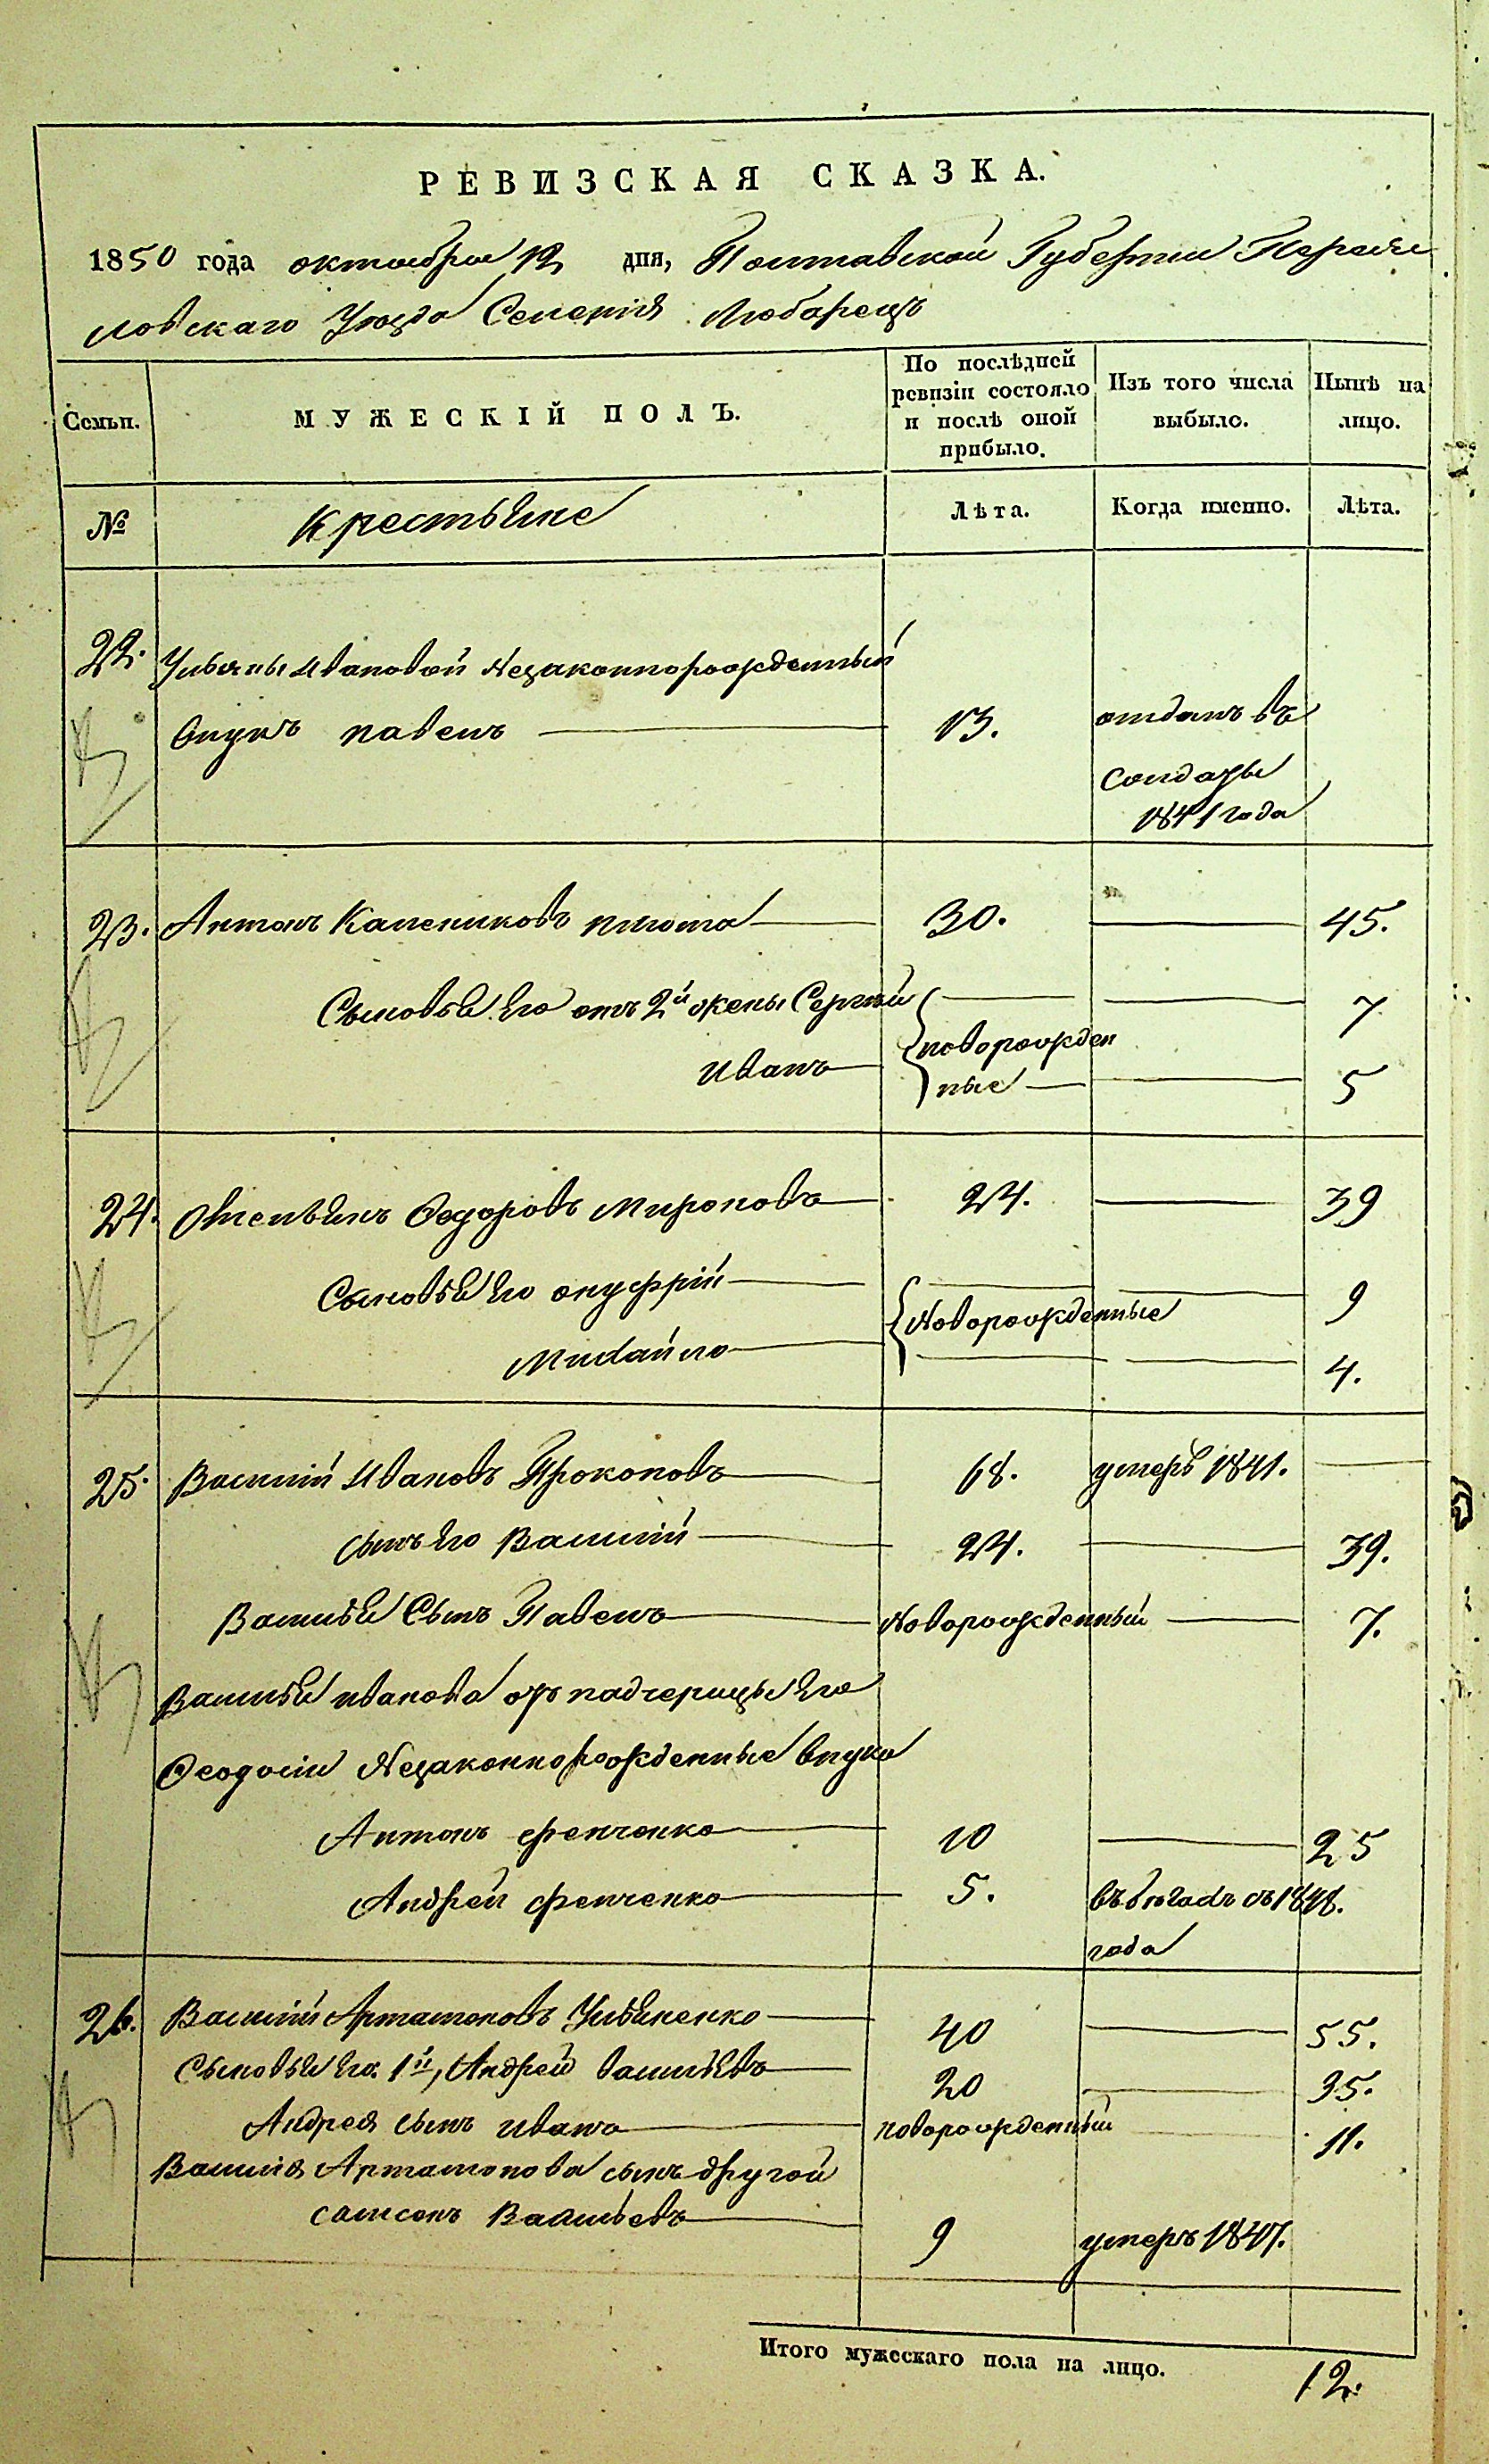 РЕВИЗСКАЯ СКАЗКА.
1850 года октября 12 дня, Полтавской Губернии Переяс
ловскаго Уезда Селения Любарец
Семьи. МУЖЕСКІЙ ПОЛЪ. По послѣдней ревизіи состояло и послѣ оной прибыло. Изъ того числа выбыло. Нынѣ на лицо.
№ Крестьяне Лѣта. Когда именно. Лѣта.
22. Ульяны Ивановой Незаконнорожденный
внукъ павелъ 13. отданъ въ
солдаты
1841 года
23. Антонъ Калениковъ 30. 45.
Сыновья его отъ 2й жены Сергѣй 7
новорожден
Иванъ ные 5
24. Омельянъ Федоровъ Мироновъ 24. 39
Сыновья его онуфрій 9
Новорожденные
Михайло 4.
25. Василій Ивановъ Прокоповъ 68. умеръ 1841.
сынъ его Василій 24. 39.
Василья Сынъ Павелъ Новорожденный 7.
Василья иванова отъ падчерицы его
Феодосіи Незаконнорожденные внуки
Антонъ фенченко 10 25
Андрей фенченко 5. въ бегахъ съ 1848.
года
26. Василій Артамоновъ Ульяненко 40 55.
Сыновья его 1й, Андрей васильевъ 20 35.
Андрея сынъ иванъ новорожденный 11.
Василія Артамонова сынъ другой
самсонъ Васильевъ 9 умеръ 1847.
Итого мужескаго пола на лицо. 12.